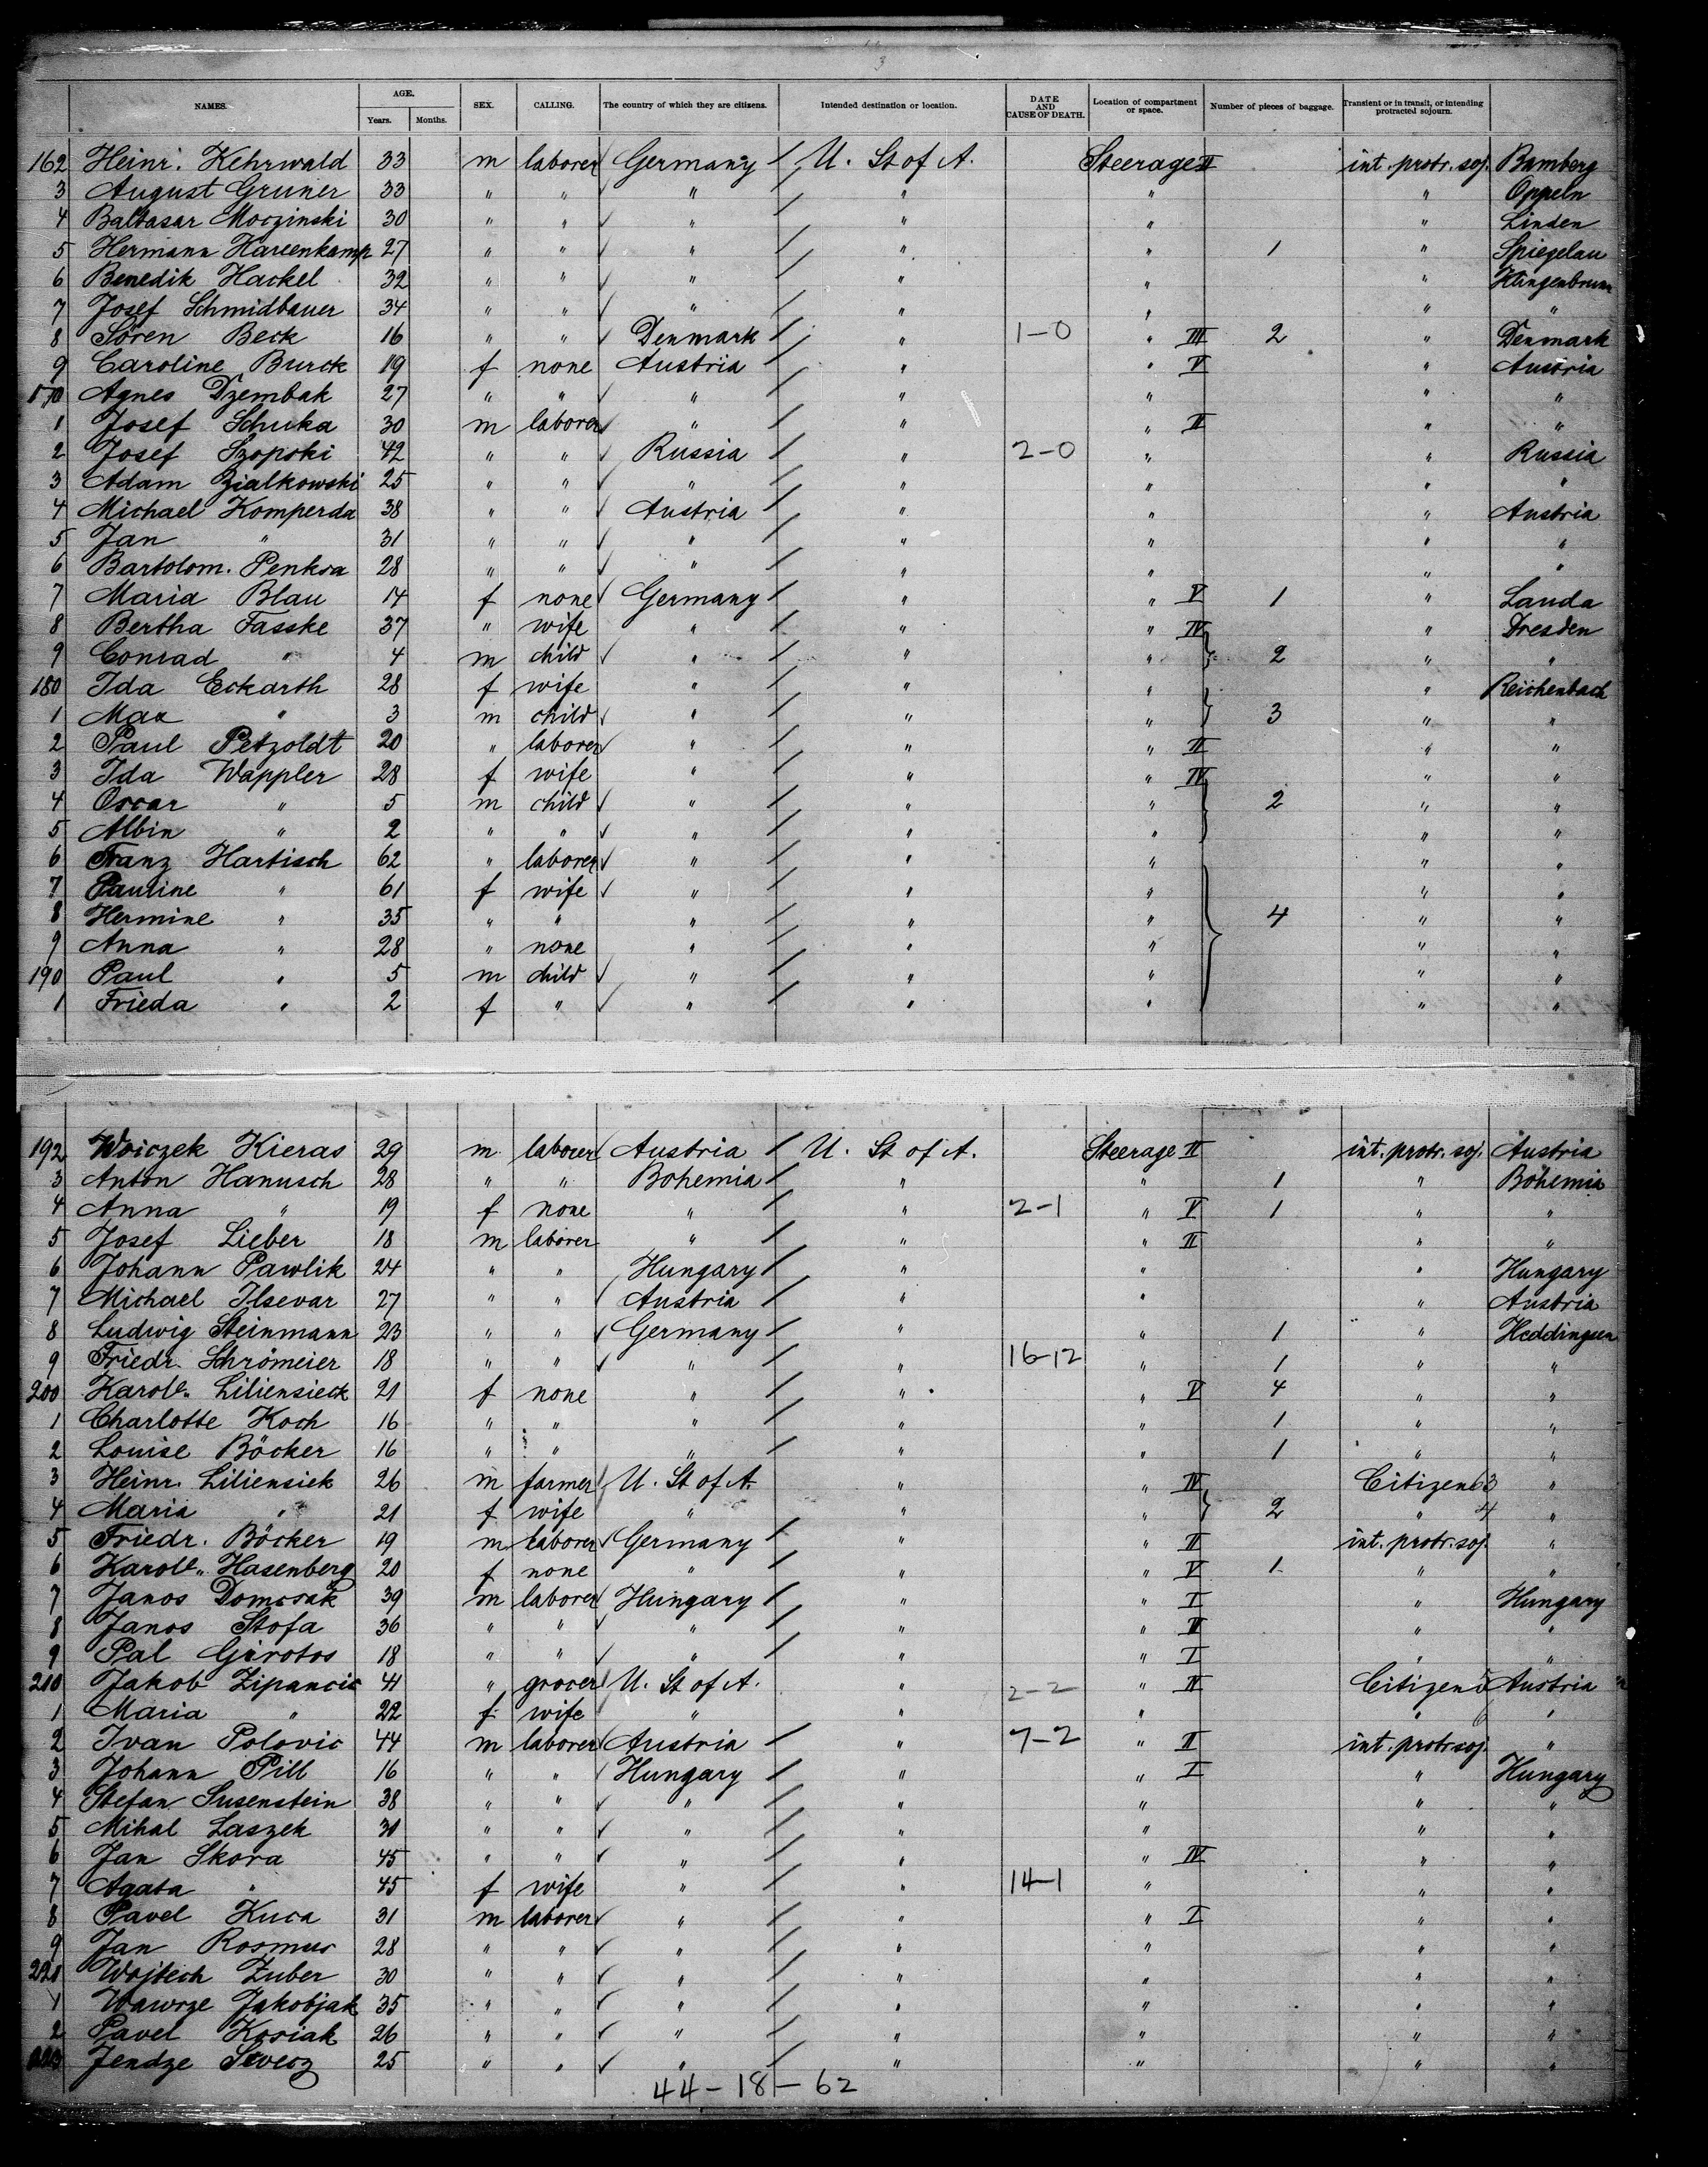 3
NAMES. AGE. Years. Months. SEX. CALLING. The country of which they are citizens. Intended destination or location. DATE AND CAUSE OF DEATH. Location of compartment or space. Number of pieces of baggage. Transient or in transit, or intending protracted sojourn.
162 Heinr. Kehrwald 33 m laborer Germany U. St of A. Steerage II int. protr. soj. Bamberg
3 August Gruner 33 " " " " " " Oppeln
4 Baltasar Moczinski 30 " " " " " " Linden
5 Hermann Hareenkamp 27 " " " " " 1 " Spiegelau
6 Benedik Hackel 32 " " " " " " Klingenbrunn
7 Josef Schmidbauer 34 " " " " " " "
8 Sören Beck 16 " " Denmark " 1-0 " III 2 " Denmark
9 Caroline Burck 19 f none Austria " " V " Austria
170 Agnes Dzembak 27 " " " " " " "
1 Josef Schuka 30 m laborer " " " II " "
2 Josef Szopski 42 " " Russia " 2-0 " " Russia
3 Adam Zialkowski 25 " " " " " " "
4 Michael Komperda 38 " " Austria " " " Austria
5 Jan " 31 " " " " " " "
6 Bartolom. Penksa 28 " " " " " " "
7 Maria Blau 14 f none Germany " " V 1 " Lauda
8 Bertha Fasske 37 " wife " " " IV " Dresden
9 Conrad " 4 m child " " " 2 " "
180 Ida Eckarth 28 f wife " " " " Reichenbach
1 Max " 3 m child " " " 3 " "
2 Paul Petzoldt 20 " laborer " " " II " "
3 Ida Wappler 28 f wife " " " IV " "
4 Oscar " 5 m child " " " 2 " "
5 Albin " 2 " " " " " " "
6 Franz Hartisch 62 " laborer " " " " "
7 Pauline " 61 f wife " " " " "
8 Hermine " 35 " " " " " 4 " "
9 Anna " 28 " none " " " " "
190 Paul " 5 m child " " " " "
1 Frieda " 2 f " " " " " "
192 Woiczek Kieras 29 m laborer Austria U. St of A. Steerage II int. protr. soj. Austria
3 Anton Hanusch 28 " " Bohemia " " 1 " Bohemia
4 Anna " 19 f none " " 2-1 " V 1 " "
5 Josef Lieber 18 m laborer " " " II " "
6 Johann Pawlik 24 " " Hungary " " " Hungary
7 Michael Ilsevar 27 " " Austria " " " Austria
8 Ludwig Steinmann 23 " " Germany " " 1 " Heddingsen
9 Friedr. Schrömeier 18 " " " " 16-12 " 1 " "
200 Karole. Liliensieck 21 f none " " " V 4 " "
1 Charlotte Koch 16 " " " " " 1 " "
2 Louise Böcker 16 " " " " " 1 " "
3 Heinr. Liliensiek 26 m farmer U. St of A. " " IV Citizen 3 "
4 Maria " 21 f wife " " " 2 " 4 "
5 Friedr. Böcker 19 m laborer Germany " " II int. protr. soj. "
6 Karole. Hasenberg 20 f none " " " V 1 " "
7 Janos Domcsak 39 m laborer Hungary " " I " Hungary
8 Janos Stofa 36 " " " " " II " "
9 Pal Girotos 18 " " " " " I " "
210 Jakob Zipancic 41 " grocer U. St of A. " 2-2 " IV Citizen 5 Austria
1 Maria " 22 f wife " " " " 6 "
2 Ivan Polovic 44 m laborer Austria " 7-2 " II int. protr soj. "
3 Johann Pill 16 " " Hungary " " I " Hungary
4 Stefan Susenstein 38 " " " " " " "
5 Mihal Laszek 31 " " " " " " "
6 Jan Skora 45 " " " " " IV " "
7 Agata " 45 f wife " " 14-1 " " "
8 Pavel Kuca 31 m laborer " " " I " "
9 Jan Rosmus 28 " " " " " " "
Wojtech Zuber 30 " " " " " " "
1 Wawrze Jakobjak 35 " " " " " " "
2 Pavel Kosiak 26 " " " " " " "
223 Jendze Severz 25 " " " " " " "
44-18-62